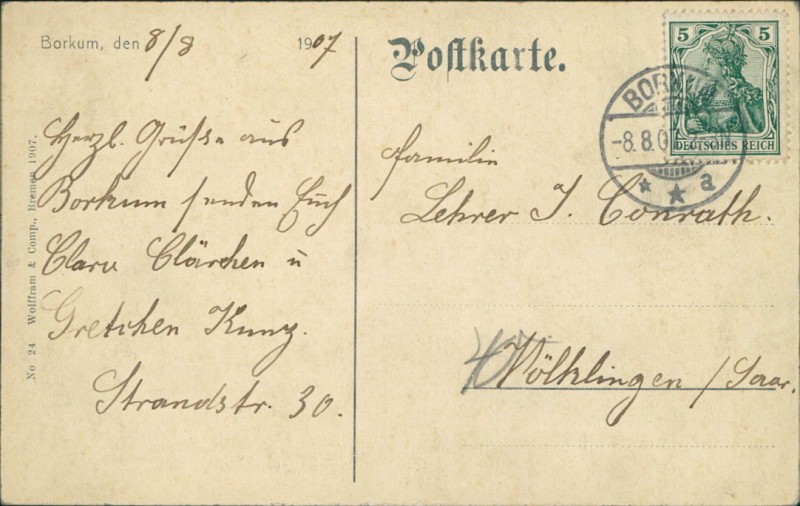 Borkum, den 8/8 1907
Herzl. Grüße aus
Borkum senden Euch
Clara Clärchen u
Gretchen Kunz.
Strandstr. 30.
No 24 Wolffram & Comp., Bremen 1907.
Postkarte.
5 5
DEUTSCHES REICH
BORKUM
-8.8.0
a
Familie
Lehrer J. Conrath.
Völklingen /Saar.